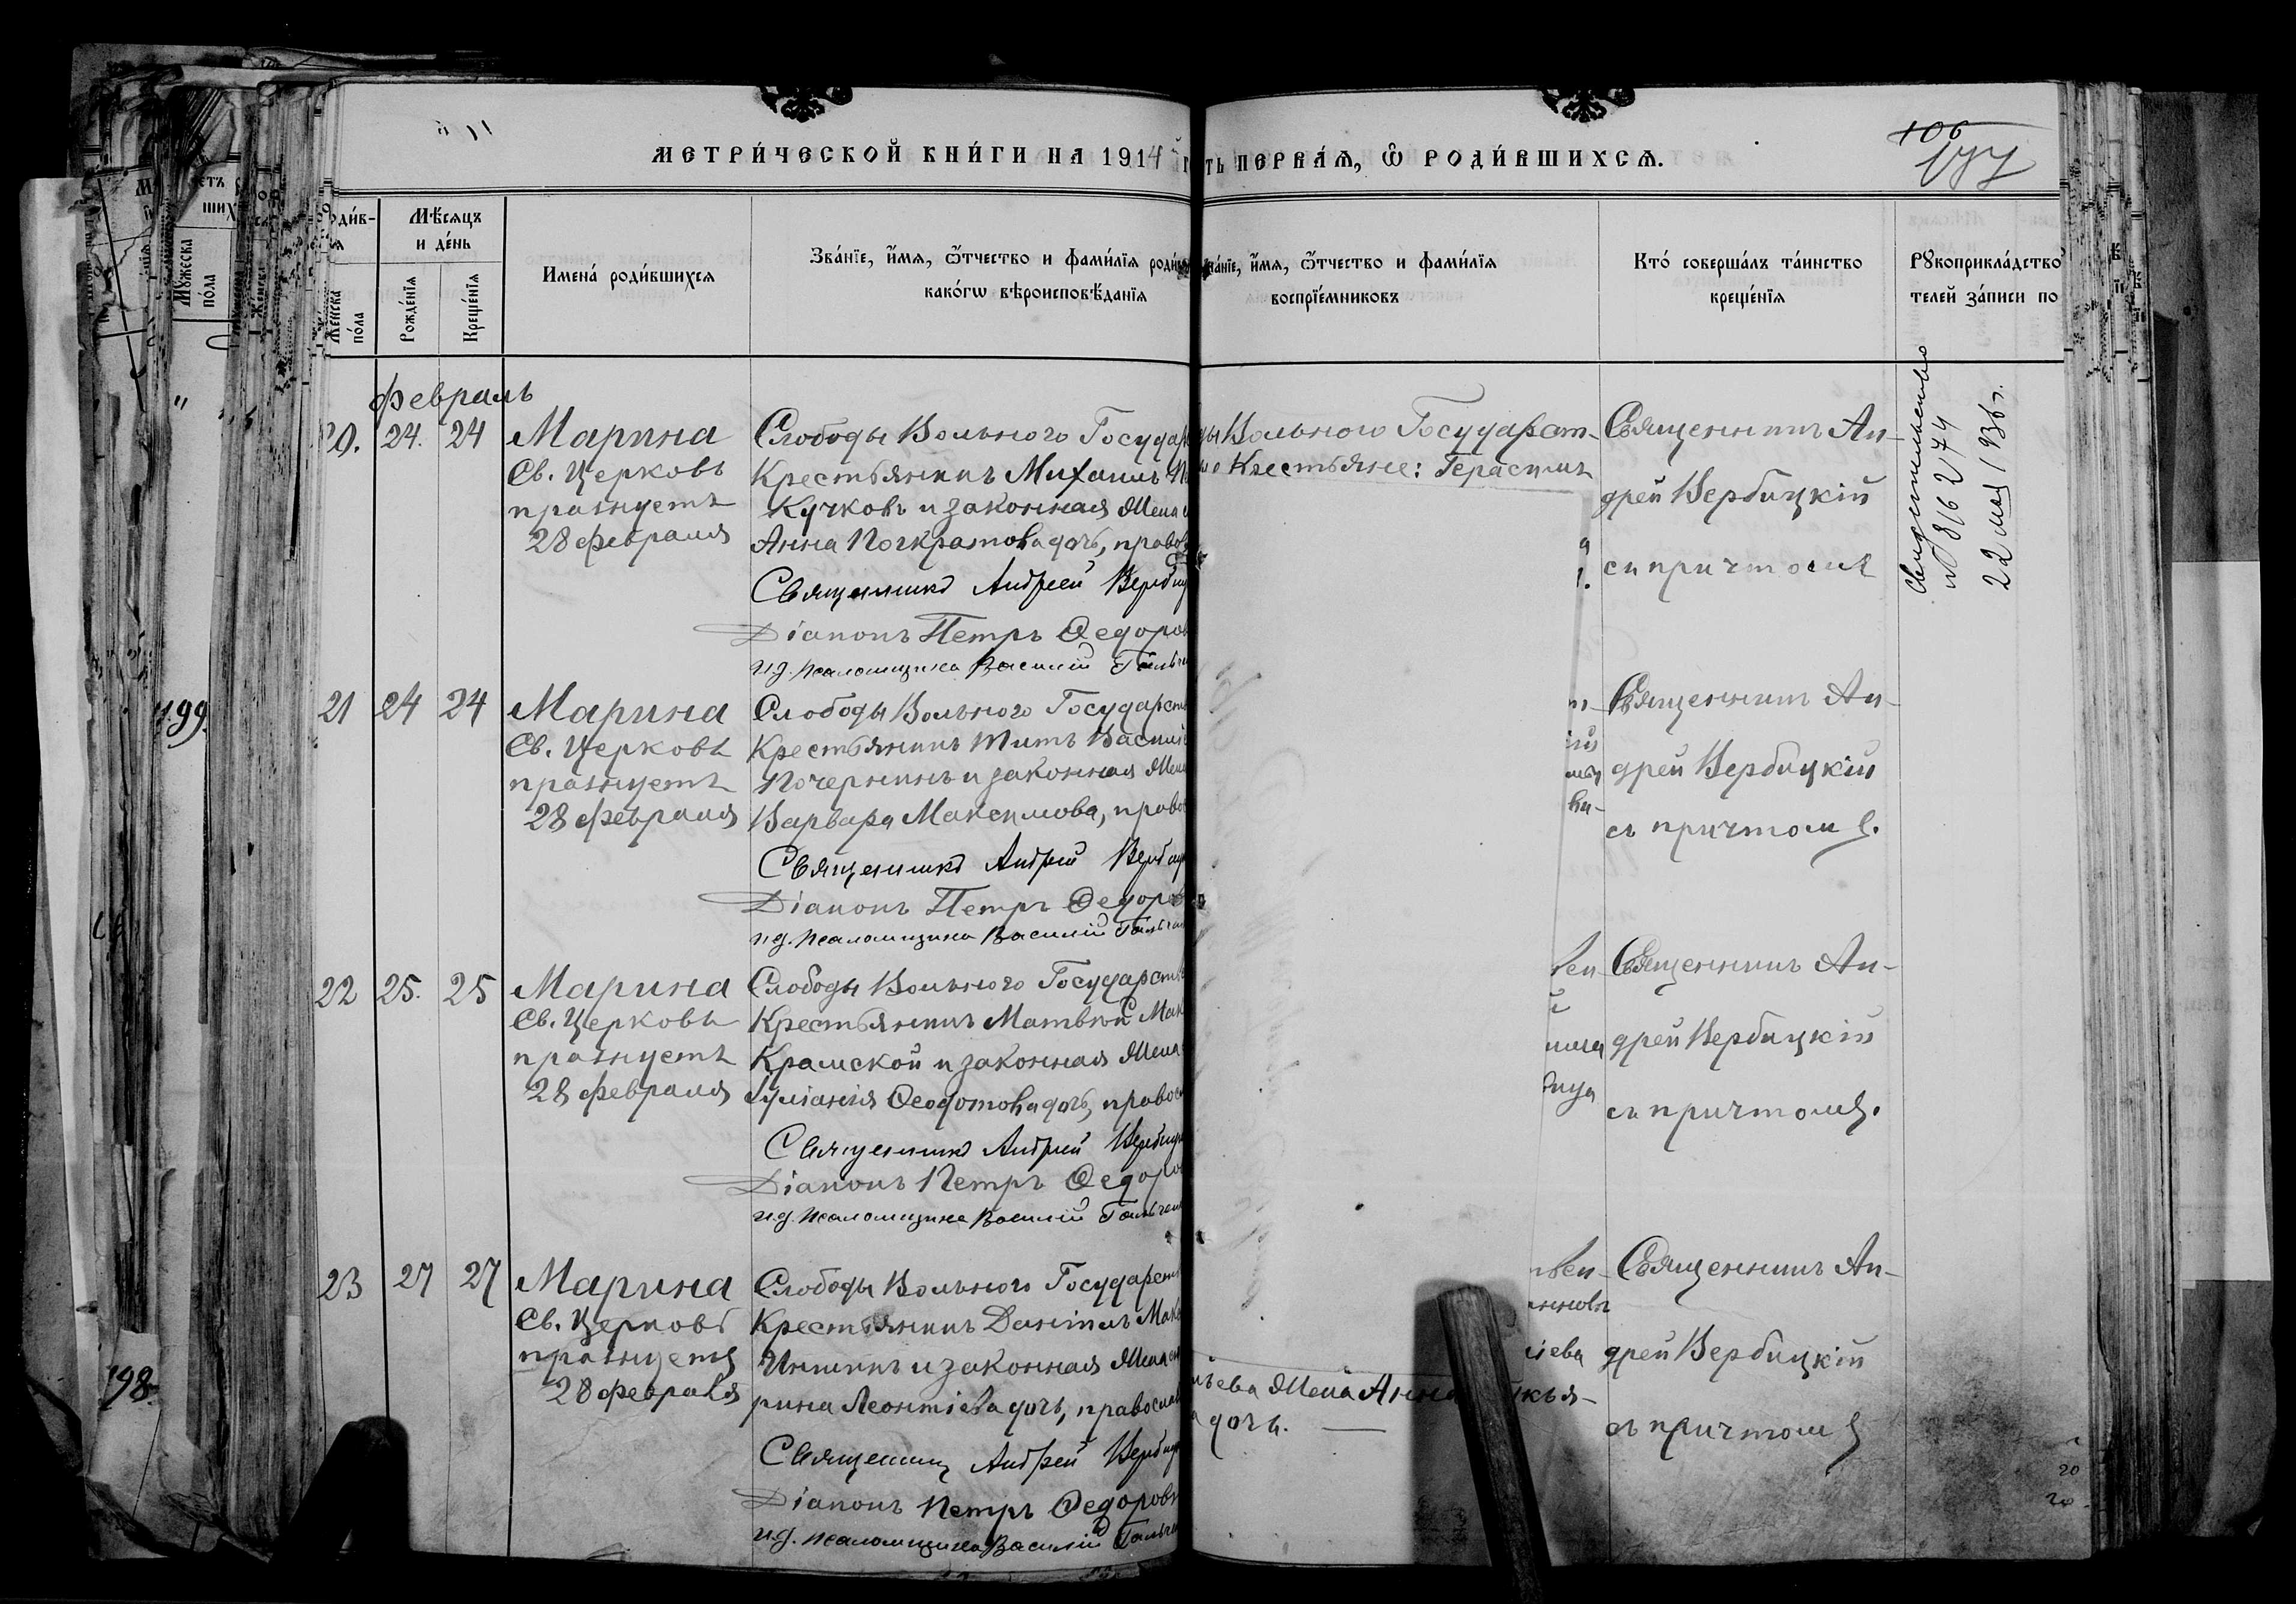 МЕТРИ́ЧЕСКОЙ КНИ́ГИ НА 1914
ТЬ ПЕРВА́Я, Ѿ РОДИ́ВШИХСЯ.
106
Мѣ́сяцъ
и де́нь
Же́нска
по́ла
Рожде́нїя
Креще́нїя
Имена̀ роди́вшихся
Зва́нїе, и҆́мя, ѻ҆́тчество и фами́лїя роди
како́гѡ вѣроисповѣ́данїя
а́нїе, и҆́мя, ѻ҆́тчество и фами́лїя
воспрїе́мниковъ
Кто̀ соверша́лъ та́инство
креще́нїя
Рꙋкоприкла́дство
телей за́писи по
Февраль
20. 24. 24
Марина
Св. Церковь
празнуетъ
28 февраля
Слободы Вольного Государ
Крестьянинъ Михаилъ
Кучковъ и законная жена
Анна Понкратова дочь, право
Священникъ Андрей Верби
Діаконъ Петръ Ѳедоров
и.д. псаломщика Василій
ды Вольного Государст-
Крестьяне: Герасимъ
Священникъ Ан-
дрей Вербицкій
съ причтомъ
Свидетельство
№ 816274
22 мая 1936 г.
21 24 24
Марина
Св. Церковь
празнуетъ
28 февраля
Слободы Вольного Государств
Крестьянинъ Титъ Василі
Почернинъ и законная жена
Варвара Максимова, право
Священникъ Андрей Верби
Діаконъ Петръ Ѳедоров
и.д. псаломщика Василій
Священникъ Ан-
дрей Вербицкій
съ причтомъ.
22 25. 25
Марина
Св. Церковь
празнуетъ
28 февраля
Слободы Вольного Государств
Крестьянинъ Матвѣй Мак
Крамской и законная жена
Іуліанія Ѳеодотова дочь, правос
Священникъ Андрей Вербиц
Діаконъ Петръ Ѳедоро
и.д. псаломщика Василій
Священникъ Ан-
дрей Вербицкій
съ причтомъ.
23 27 27
Марина
Св. Церковь
празнуетъ
28 февраля
Слободы Вольного Государств
Крестьянинъ Даніилъ Мак
и законная жена
рина Леонтіева дочь, православ
Священникъ Андрей Вербиц
Діаконъ Петръ Ѳедоров
и.д. псаломщика Василій
ьева жена Анна
дочь.
Священникъ Ан-
дрей Вербицкій
съ причтомъ
199.
198.